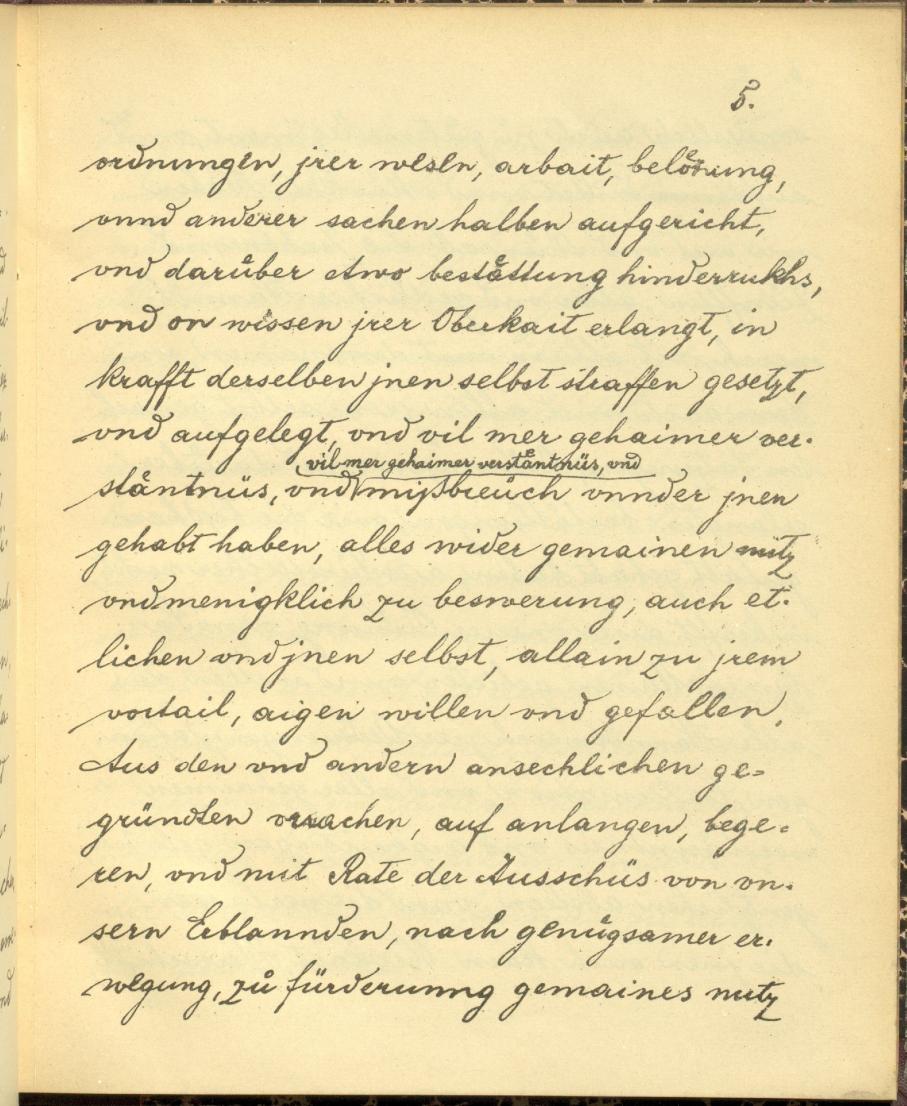 5.
ordnungen, jrer wesen, arbait, belönung,
vnnd anderer sachen halben aufgericht,
vnd darůber etwo beståttung hinderrukhs,
vnd on wissen jrer Oberkait erlangt, in
krafft derselben jnen selbst straffen gesetzt,
vnd aufgelegt, vnd vil mer gehaimer ver-
vil mer gehaimer verståntnüs, vnd
ståntnüs, vnd mißbreüch vnnder jnen
gehabt haben, alles wider gemainen nutz
vnd menigklich zu beswerung, auch et-
lichen vnd jnen selbst, allain zu jrem
vortail, aigen willen vnd gefallen.
Aus den vnd andern ansechlichen ge=
gründten vrsachen, auf anlangen, bege=
ren, vnd mit Rate der Ausschüs von vn-
sern Erblannden, nach genůgsamer er-
wegung, zů fürderunng gemaines nutz